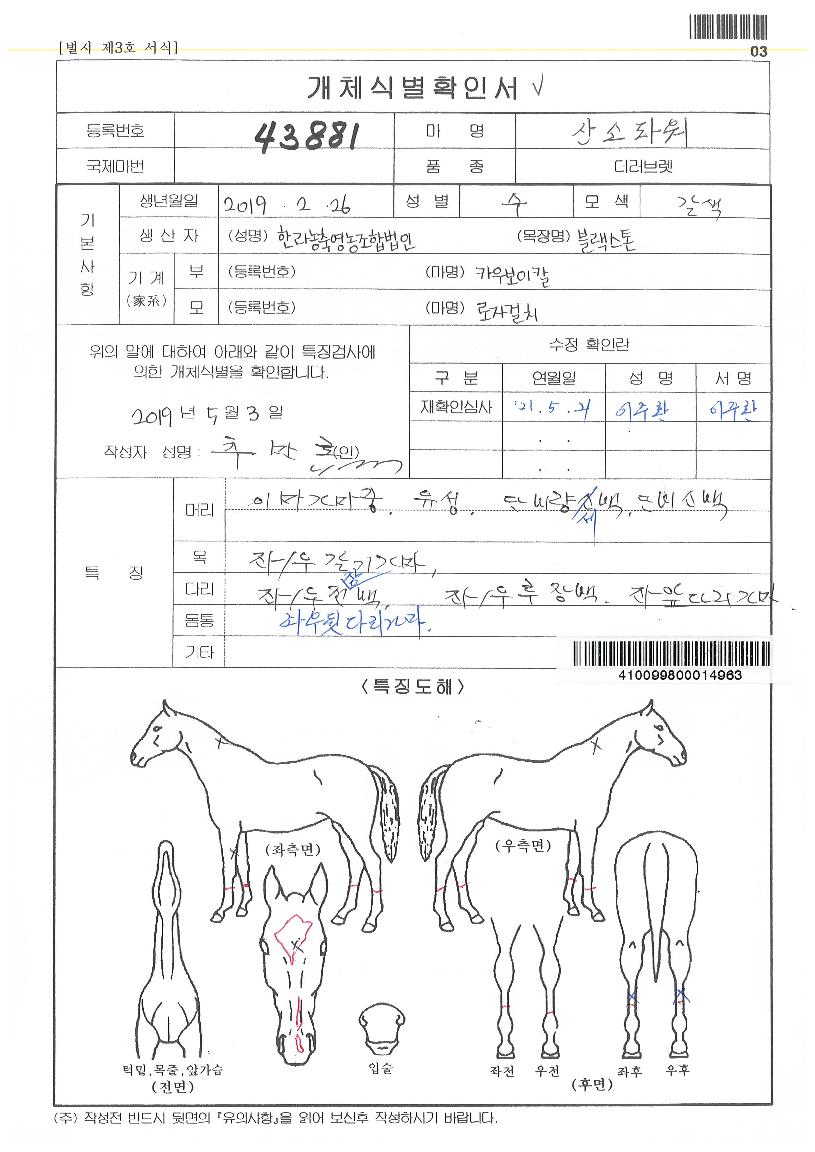 [별지 제3호 서식]
03
개체식별확인서 √
등록번호 43881 마 명 산소파워
국제마번 품 종 디러브렛
기본사항
생년월일 2019 . 2 . 26 성 별 수 모 색 갈색
생 산 자 (성명) 한라농축영농조합법인 (목장명) 블랙스톤
기 계 (家系)
부 (등록번호) (마명) 카우보이칼
모 (등록번호) (마명) 로자걸치
위의 말에 대하여 아래와 같이 특징검사에
의한 개체식별을 확인합니다.
2019 년 5 월 3 일
작성자 성명 : 추 (인)
수정 확인란
구 분 연월일 성 명 서 명
재확인심사 '21. 5 . 21 이주환 이주환
. .
. .
특 징
머리 이마가마중. 유성. 세백.
목 좌/우 갈기가마,
다리 좌/우 백, 좌/우 후 장백. 좌앞다리가마.
몸통 좌우뒷다리가마.
기타
410099800014963
<특징도해>
(좌측면) (우측면)
턱밑,목줄,앞가슴
(전면)
입술
좌전 우전 좌후 우후
(후면)
(주) 작성전 반드시 뒷면의 『유의사항』을 읽어 보신후 작성하시기 바랍니다.